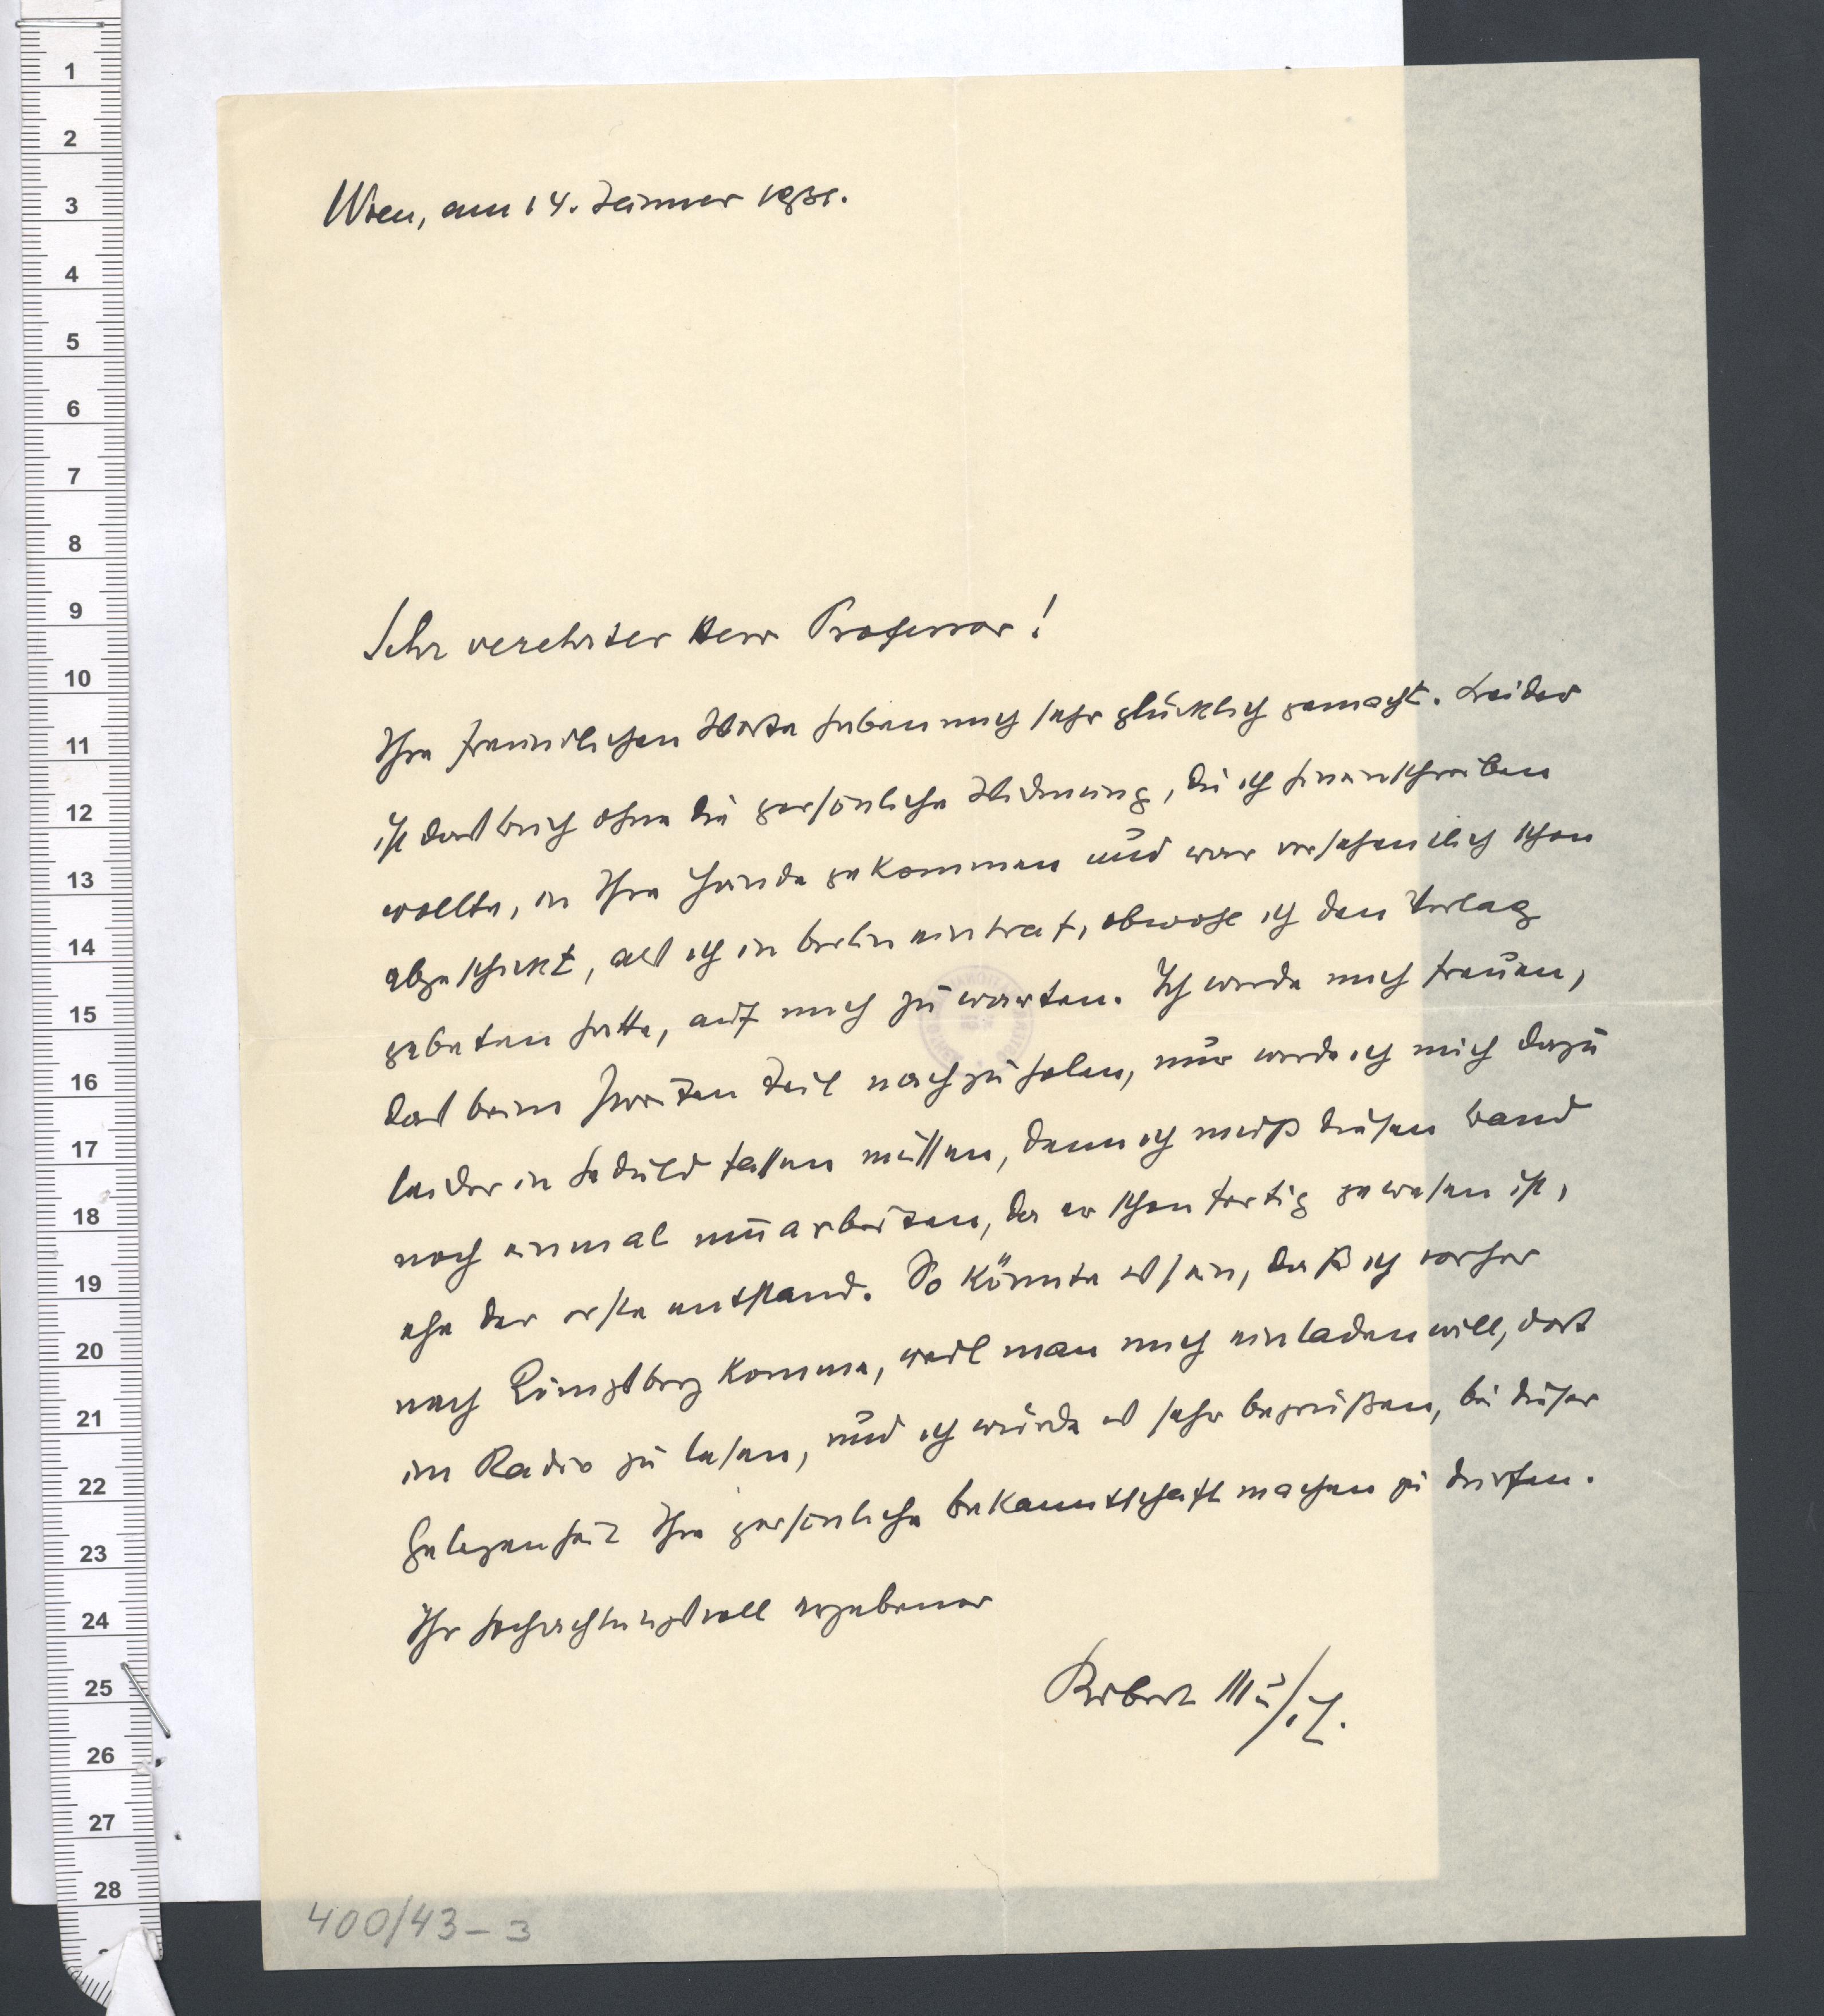 Wien, am 14. Jänner 1931.
Sehr verehrter Herr Professor!
Ihre freundlichen Worte haben mich sehr glücklich gemacht. Leider
ist das Buch ohne die persönliche Widmung, die ich hineinschreiben
wollte, in Ihre Hände gekommen und war versehentlich schon
abgeschickt, als ich in Berlin eintraf, obwohl ich den Verlag
gebeten hatte, auf mich zu warten. Ich werde mich freuen,
das beim zweiten Teil nachzuholen, nur werde ich mich dazu
leider in Geduld fassen müssen, denn ich muß diesen Band
noch einmal umarbeiten, da er schon fertig gewesen ist,
ehe der erste entstand. So könnte es sein, daß ich vorher
nach Königsberg komme, weil man mich einladen will, dort
im Radio zu lesen, und ich würde es sehr begrüßen, bei dieser
Gelegenheit Ihre persönliche Bekanntschaft machen zu dürfen.
Ihr hochachtungsvoll ergebener
Robert Musil.
400/43-3
1
2
3
4
5
6
7
8
9
10
11
12
13
14
15
16
17
18
19
20
21
22
23
24
25
26
27
28